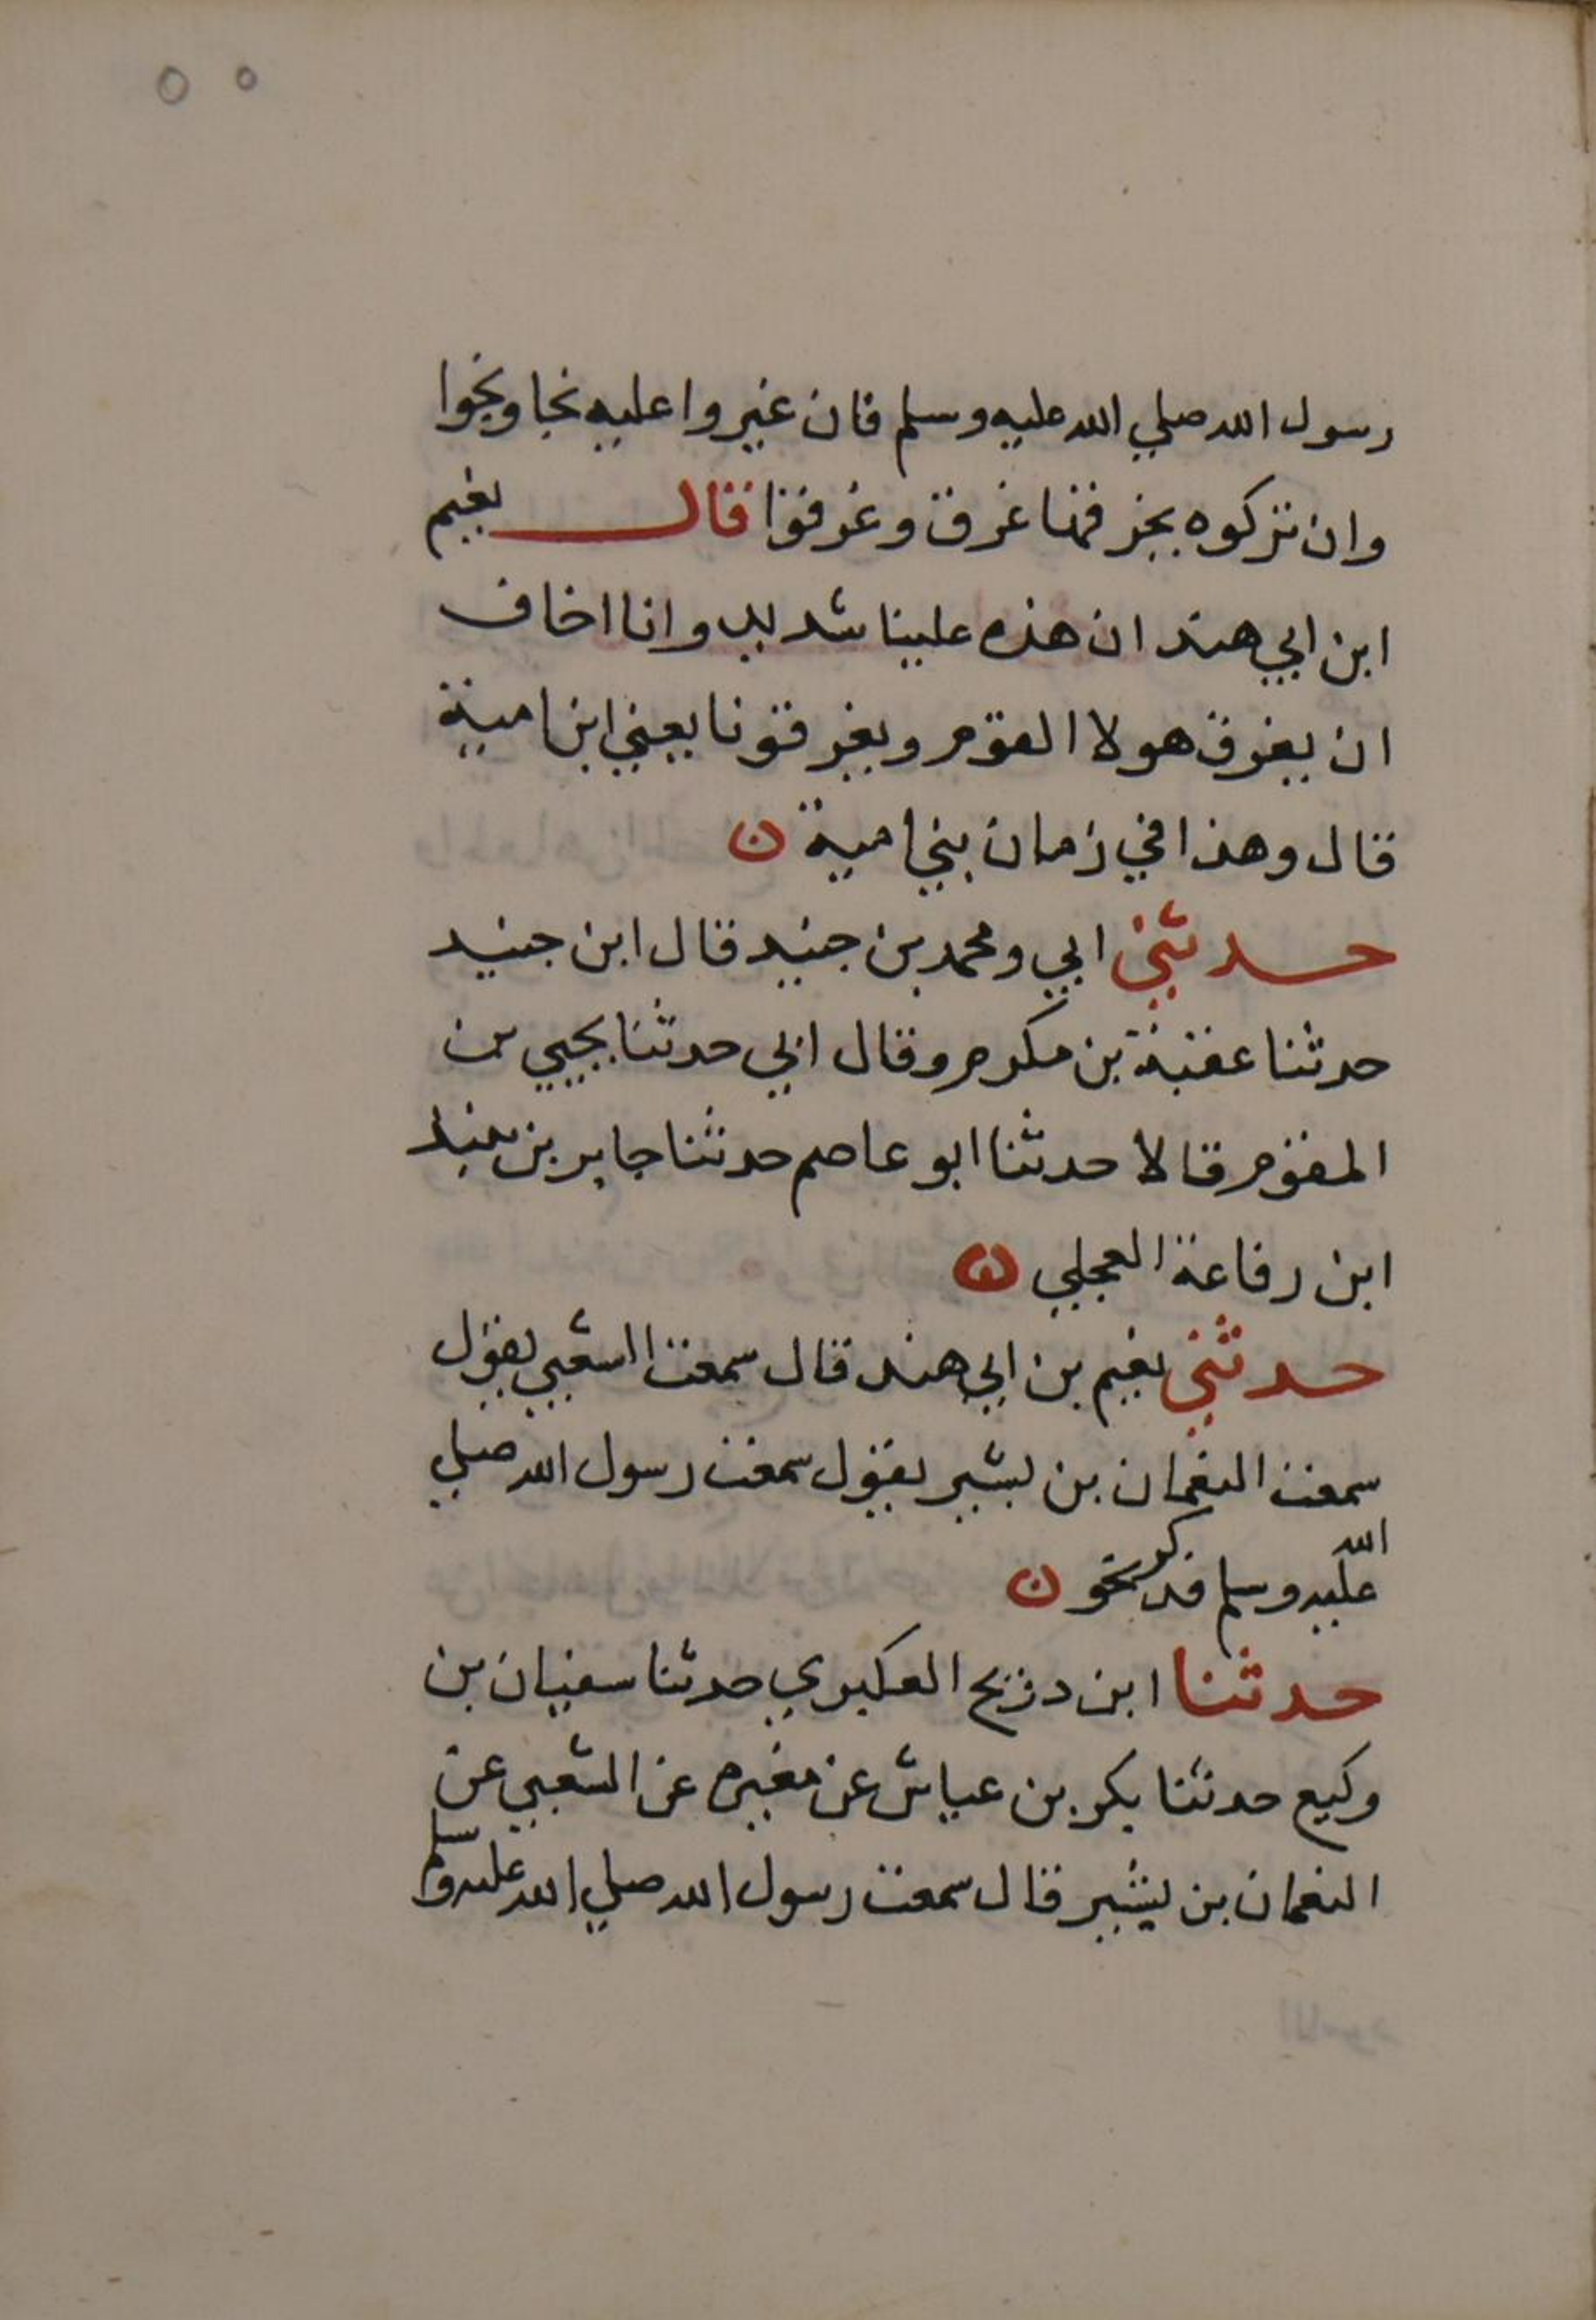 ٥٥
رسول الله صلي الله عليه وسلم فان غيروا عليه نجا ونجوا
وان تركوه يخرقها غرق وغرقوا فقال نعيم
ابن ابي هند ان هذه علينا شديد وانا اخاف
ان يغرق هولا القوم ويغرقونا يعني ابن امية
قال وهذا في زمان بني امية ن
حدثني ابي ومحمد بن جنيد قال ابن جنيد
حدثنا عقبة بن مكرم وقال ابي حدثنا يحيي بن
المقوم قالا حدثنا ابو عاصم حدثنا جابر بن
ابن رفاعة العجلي ن
حدثني نعيم بن ابي هند قال سمعت الشعبي يقول
سمعت النعمان بن بشير يقول سمعت رسول الله صلي
الله عليه وسلم فذكر نحو ن
حدثنا ابن ذريح العكبري حدثنا سفيان بن
وكيع حدثنا بكر بن عياش عن مغيره عن الشعبي عن
النعمان بن بشير قال سمعت رسول الله صلي الله عليه وسلم